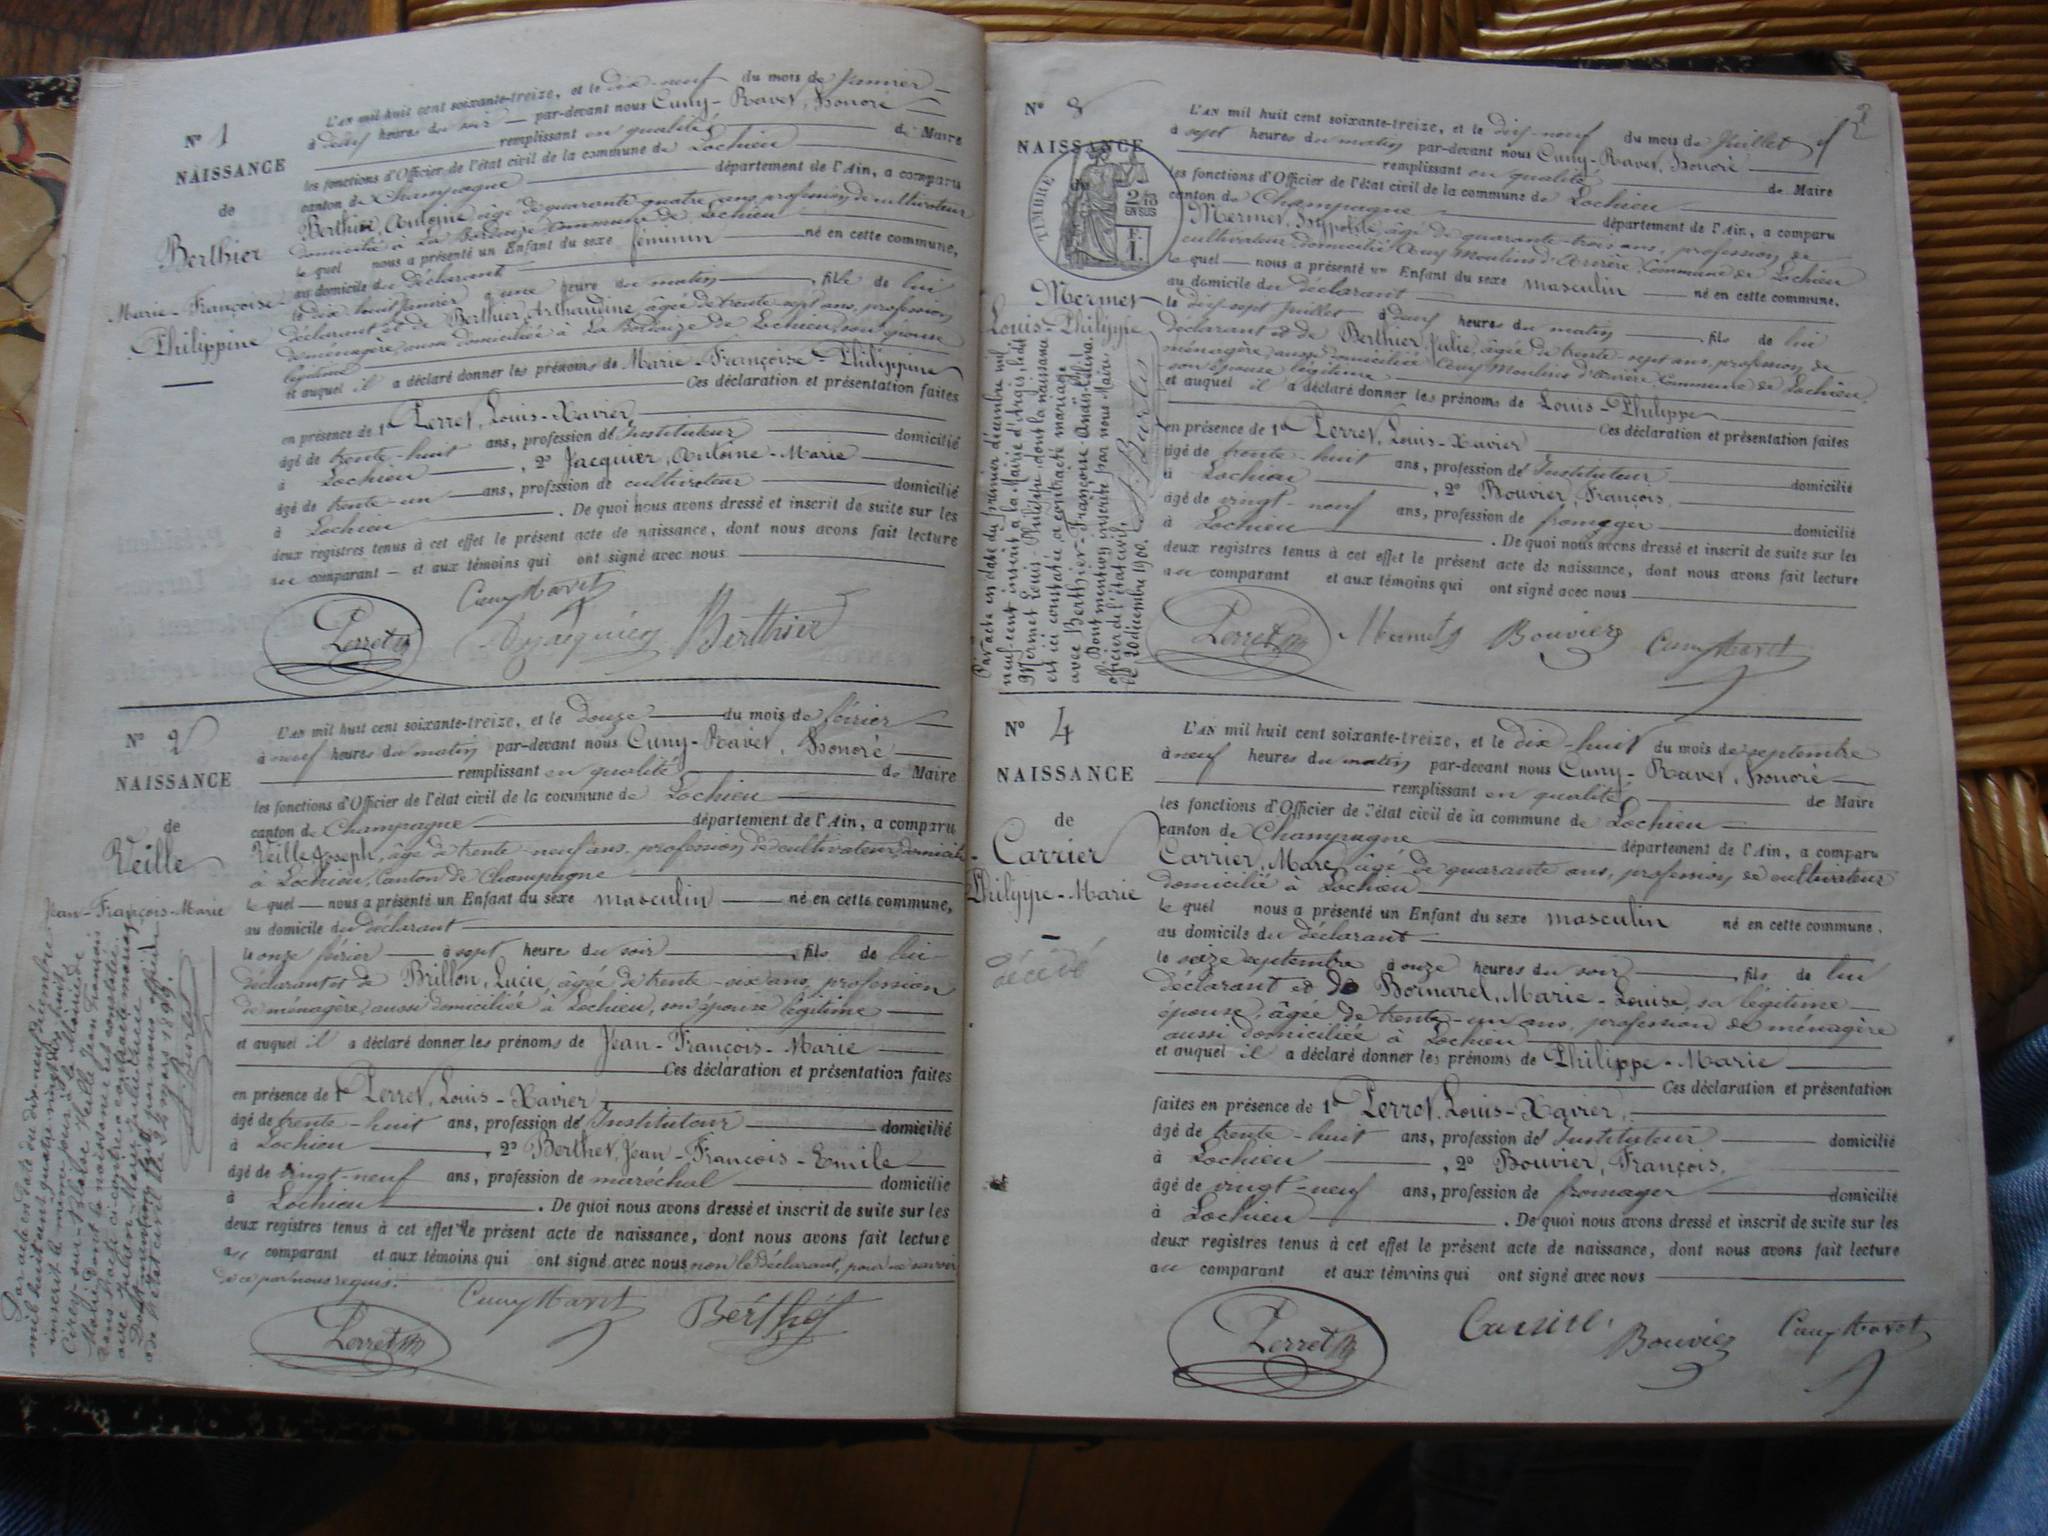 N° 1
NAISSANCE
de
Berthier
Marie-Françoise-
Philippine
L'AN mil huit cent soixante-treize, et le dix-neuf du mois de Janvier
à deux heures du soir par-devant nous Cuny-Ravet, Honoré
remplissant en qualité de Maire
les fonctions d'Officier de l'état civil de la commune de Lochieu
canton de Champagne département de l'Ain, a comparu
Berthier, Antoine âgé de quarante quatre ans, profession de cultivateur
domicilié à La commune de Lochieu
le quel nous a présenté un Enfant du sexe féminin né en cette commune,
au domicile du déclarant
le dix huit Janvier à une heure du matin, fille de lui
déclarant et de Berthier, âgée de trente-sept ans, profession
de ménagère, aussi domiciliée à La de Lochieu, son épouse
légitime
et auquel il a déclaré donner les prénoms de Marie-Françoise-Philippine
Ces déclaration et présentation faites
en présence de 1° Perret, Louis-Xavier
âgé de trente-huit ans, profession d'Instituteur domicilié
à Lochieu, 2° Jacquier, Antoine-Marie
âgé de trente-un ans, profession de cultivateur domicilié
à Lochieu. De quoi nous avons dressé et inscrit de suite sur les
deux registres tenus à cet effet le présent acte de naissance, dont nous avons fait lecture
au comparant et aux témoins qui ont signé avec nous
Cuny Ravet
Perret Jacquier Berthier
N° 2
NAISSANCE
de
Veille
Jean-François-Marie
L'AN mil huit cent soixante-treize, et le douze du mois de février
à neuf heures du matin par-devant nous Cuny-Ravet, Honoré
remplissant en qualité de Maire
les fonctions d'Officier de l'état civil de la commune de Lochieu
canton de Champagne département de l'Ain, a comparu
Veille Joseph, âgé de trente-neuf ans, profession de cultivateur, domicilié
à Lochieu, Canton de Champagne
le quel nous a présenté un Enfant du sexe masculin né en cette commune,
au domicile du déclarant
le onze février à sept heure du soir, fils de lui
déclarant et de Brillon, Lucie, âgée de trente-six ans, profession
de ménagère, aussi domiciliée à Lochieu, son épouse légitime
et auquel il a déclaré donner les prénoms de Jean-François-Marie
Ces déclaration et présentation faites
en présence de 1° Perret, Louis-Xavier
âgé de trente-huit ans, profession d'Instituteur domicilié
à Lochieu, 2° Berthet, Jean-François-Emile
âgé de vingt-neuf ans, profession de maréchal domicilié
à Lochieu. De quoi nous avons dressé et inscrit de suite sur les
deux registres tenus à cet effet le présent acte de naissance, dont nous avons fait lecture
au comparant et aux témoins qui ont signé avec nous non le Déclarant, pour ne savoir
de ce par nous requis.
Cuny Ravet
Perret Berthet
Par acte en date du dix-neuf
mil huit cent quatre-vingt
inscrit le même jour à la Mairie de
dont la naissance est constatée
dans l'acte ci-contre a contracté mariage
avec
Dont mention par nous officier
de l'état civil le 24 mars 1899.
2
N° 3
NAISSANCE
de
TIMBRE
2/10
EN SUS
F.
1.
Mermet
Louis-Philippe
L'AN mil huit cent soixante-treize, et le dix-neuf du mois de Juillet
à sept heures du matin par-devant nous Cuny-Ravet, Honoré
remplissant en qualité de Maire
les fonctions d'Officier de l'état civil de la commune de Lochieu
canton de Champagne département de l'Ain, a comparu
Mermet, Hyppolite, âgé de quarante-trois ans, profession de
cultivateur domicilié Aux Moulins d'Arvière Commune de Lochieu
le quel nous a présenté un Enfant du sexe masculin né en cette commune,
au domicile du déclarant
le dix-sept Juillet à deux heures du matin, fils de lui
déclarant et de Berthier, Julie, âgée de trente-sept ans, profession de
ménagère, aussi domiciliée Aux Moulins d'Arvière Commune de Lochieu,
son épouse légitime
et auquel il a déclaré donner les prénoms de Louis-Philippe
Ces déclaration et présentation faites
en présence de 1° Perret, Louis-Xavier
âgé de trente-huit ans, profession d'Instituteur domicilié
à Lochieu, 2° Bouvier, François,
âgé de vingt-neuf ans, profession de fromager domicilié
à Lochieu. De quoi nous avons dressé et inscrit de suite sur les
deux registres tenus à cet effet le présent acte de naissance, dont nous avons fait lecture
au comparant et aux témoins qui ont signé avec nous
Perret Mermet Bouvier Cuny Ravet
Par acte en date du premier décembre mil
neuf cent inscrit à la Mairie d'Argis, ledit
Mermet Louis-Philippe dont la naissance
est ici constatée a contracté mariage
avec Berthier-Françoise-Anaïs
Dont mention inscrite par nous Maire
officier de l'état civil,
le 20 décembre 1900.
N° 4
NAISSANCE
de
Carrier
Philippe-Marie
décédé
L'AN mil huit cent soixante-treize, et le dix-huit du mois de septembre
à neuf heures du matin par-devant nous Cuny-Ravet, Honoré
remplissant en qualité de Maire
les fonctions d'Officier de l'état civil de la commune de Lochieu
canton de Champagne département de l'Ain, a comparu
Carrier, Marc, âgé de quarante ans, profession de cultivateur
domicilié à Lochieu
le quel nous a présenté un Enfant du sexe masculin né en cette commune,
au domicile du déclarant
le seize septembre à onze heures du soir, fils de lui
déclarant et de Bornarel, Marie-Louise, sa légitime
épouse, âgée de trente-un ans, profession de ménagère
aussi domiciliée à Lochieu
et auquel il a déclaré donner les prénoms de Philippe-Marie
Ces déclaration et présentation
faites en présence de 1° Perret, Louis-Xavier,
âgé de trente-huit ans, profession d'Instituteur domicilié
à Lochieu, 2° Bouvier, François,
âgé de vingt-neuf ans, profession de fromager domicilié
à Lochieu. De quoi nous avons dressé et inscrit de suite sur les
deux registres tenus à cet effet le présent acte de naissance, dont nous avons fait lecture
au comparant et aux témoins qui ont signé avec nous
Perret Carrier Bouvier Cuny Ravet